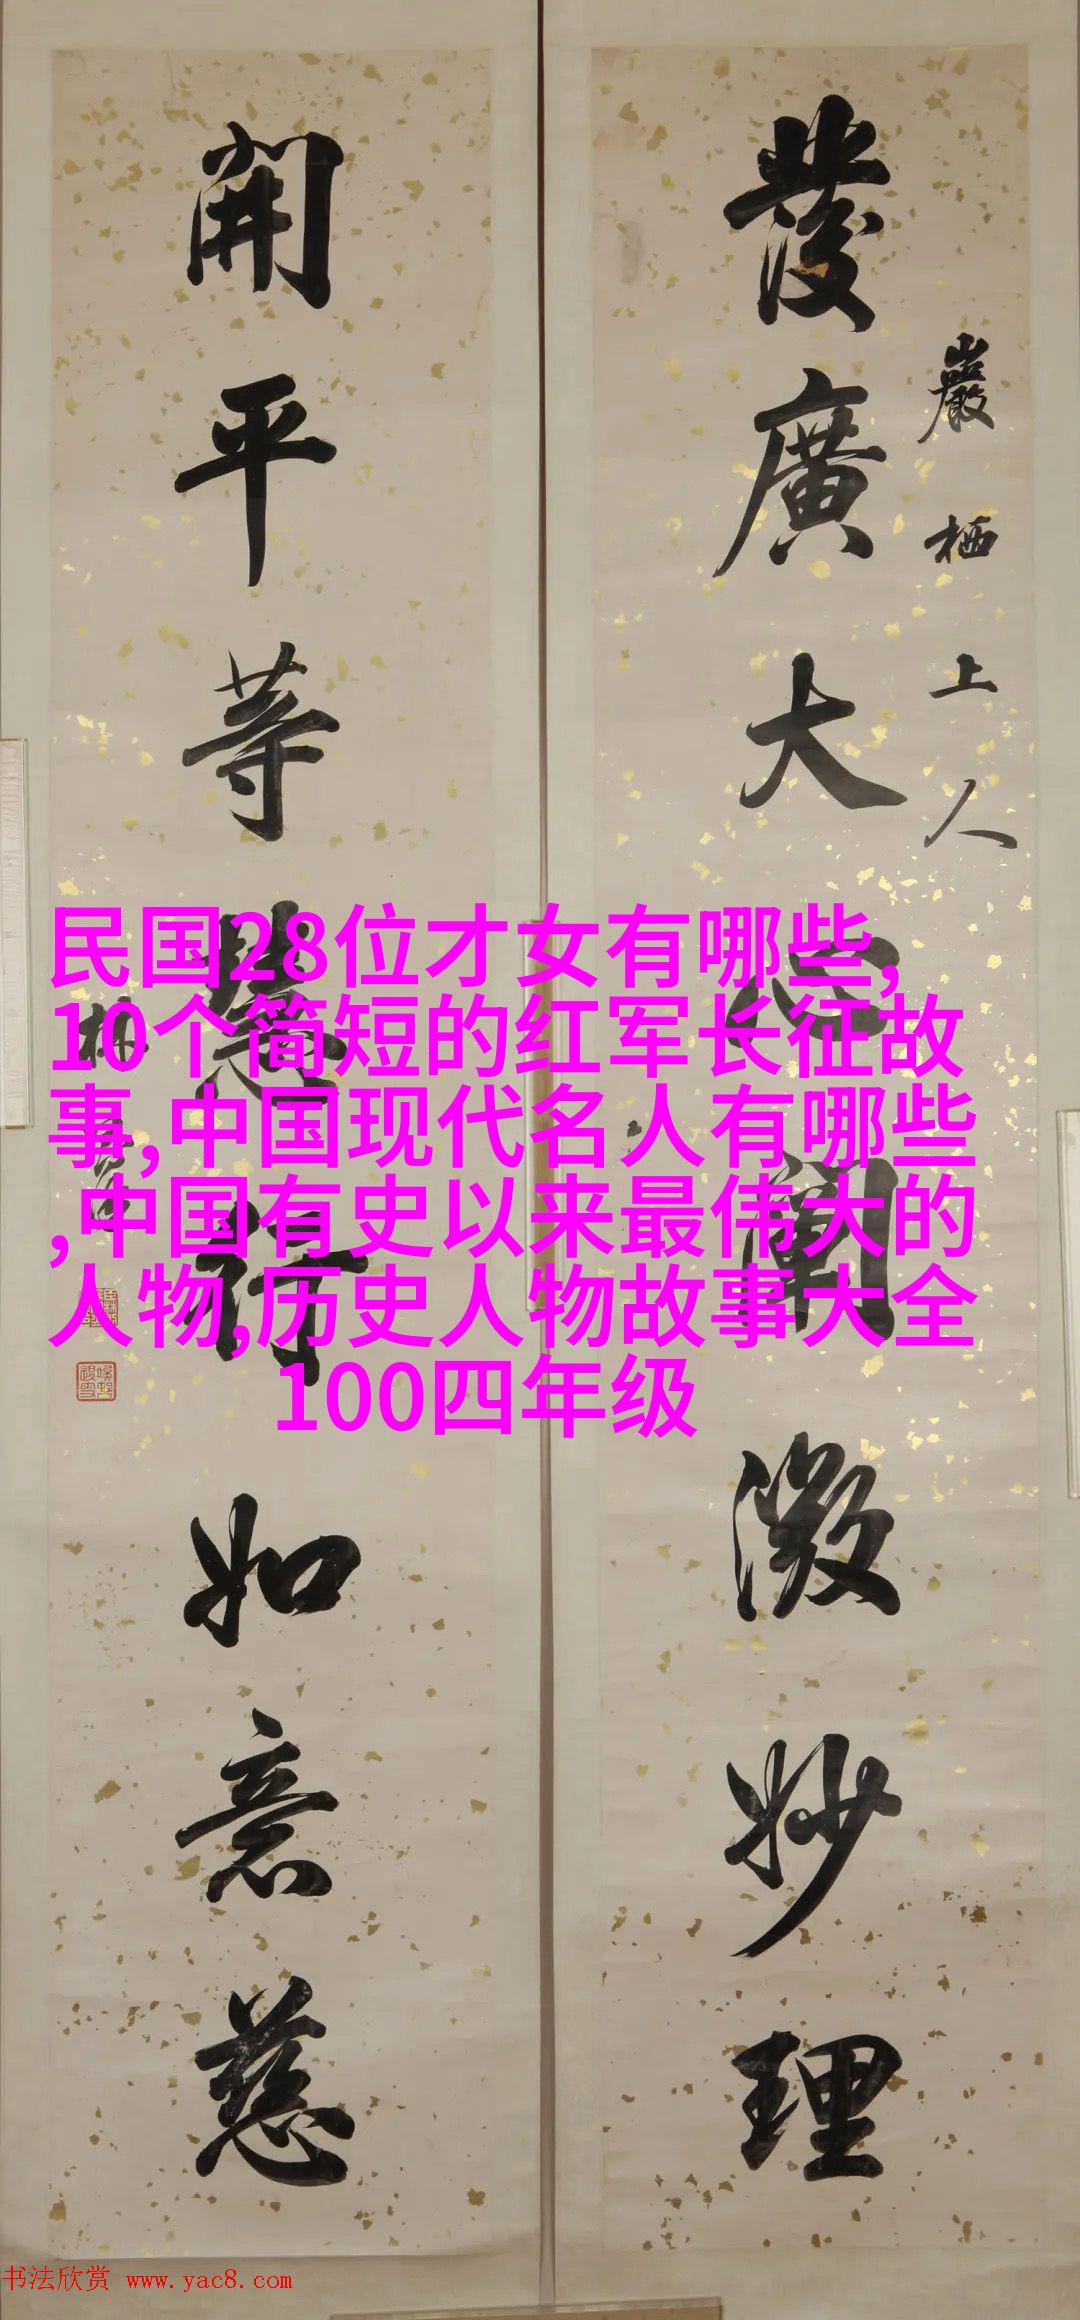 巖栖上人
發廣大心闡微妙理
開平等慧行如意慈
林
民国28位才女有哪些,
10个简短的红军长征故
事,中国现代名人有哪些
,中国有史以来最伟大的
人物,历史人物故事大全
100四年级
书法欣赏 www.yac8.com